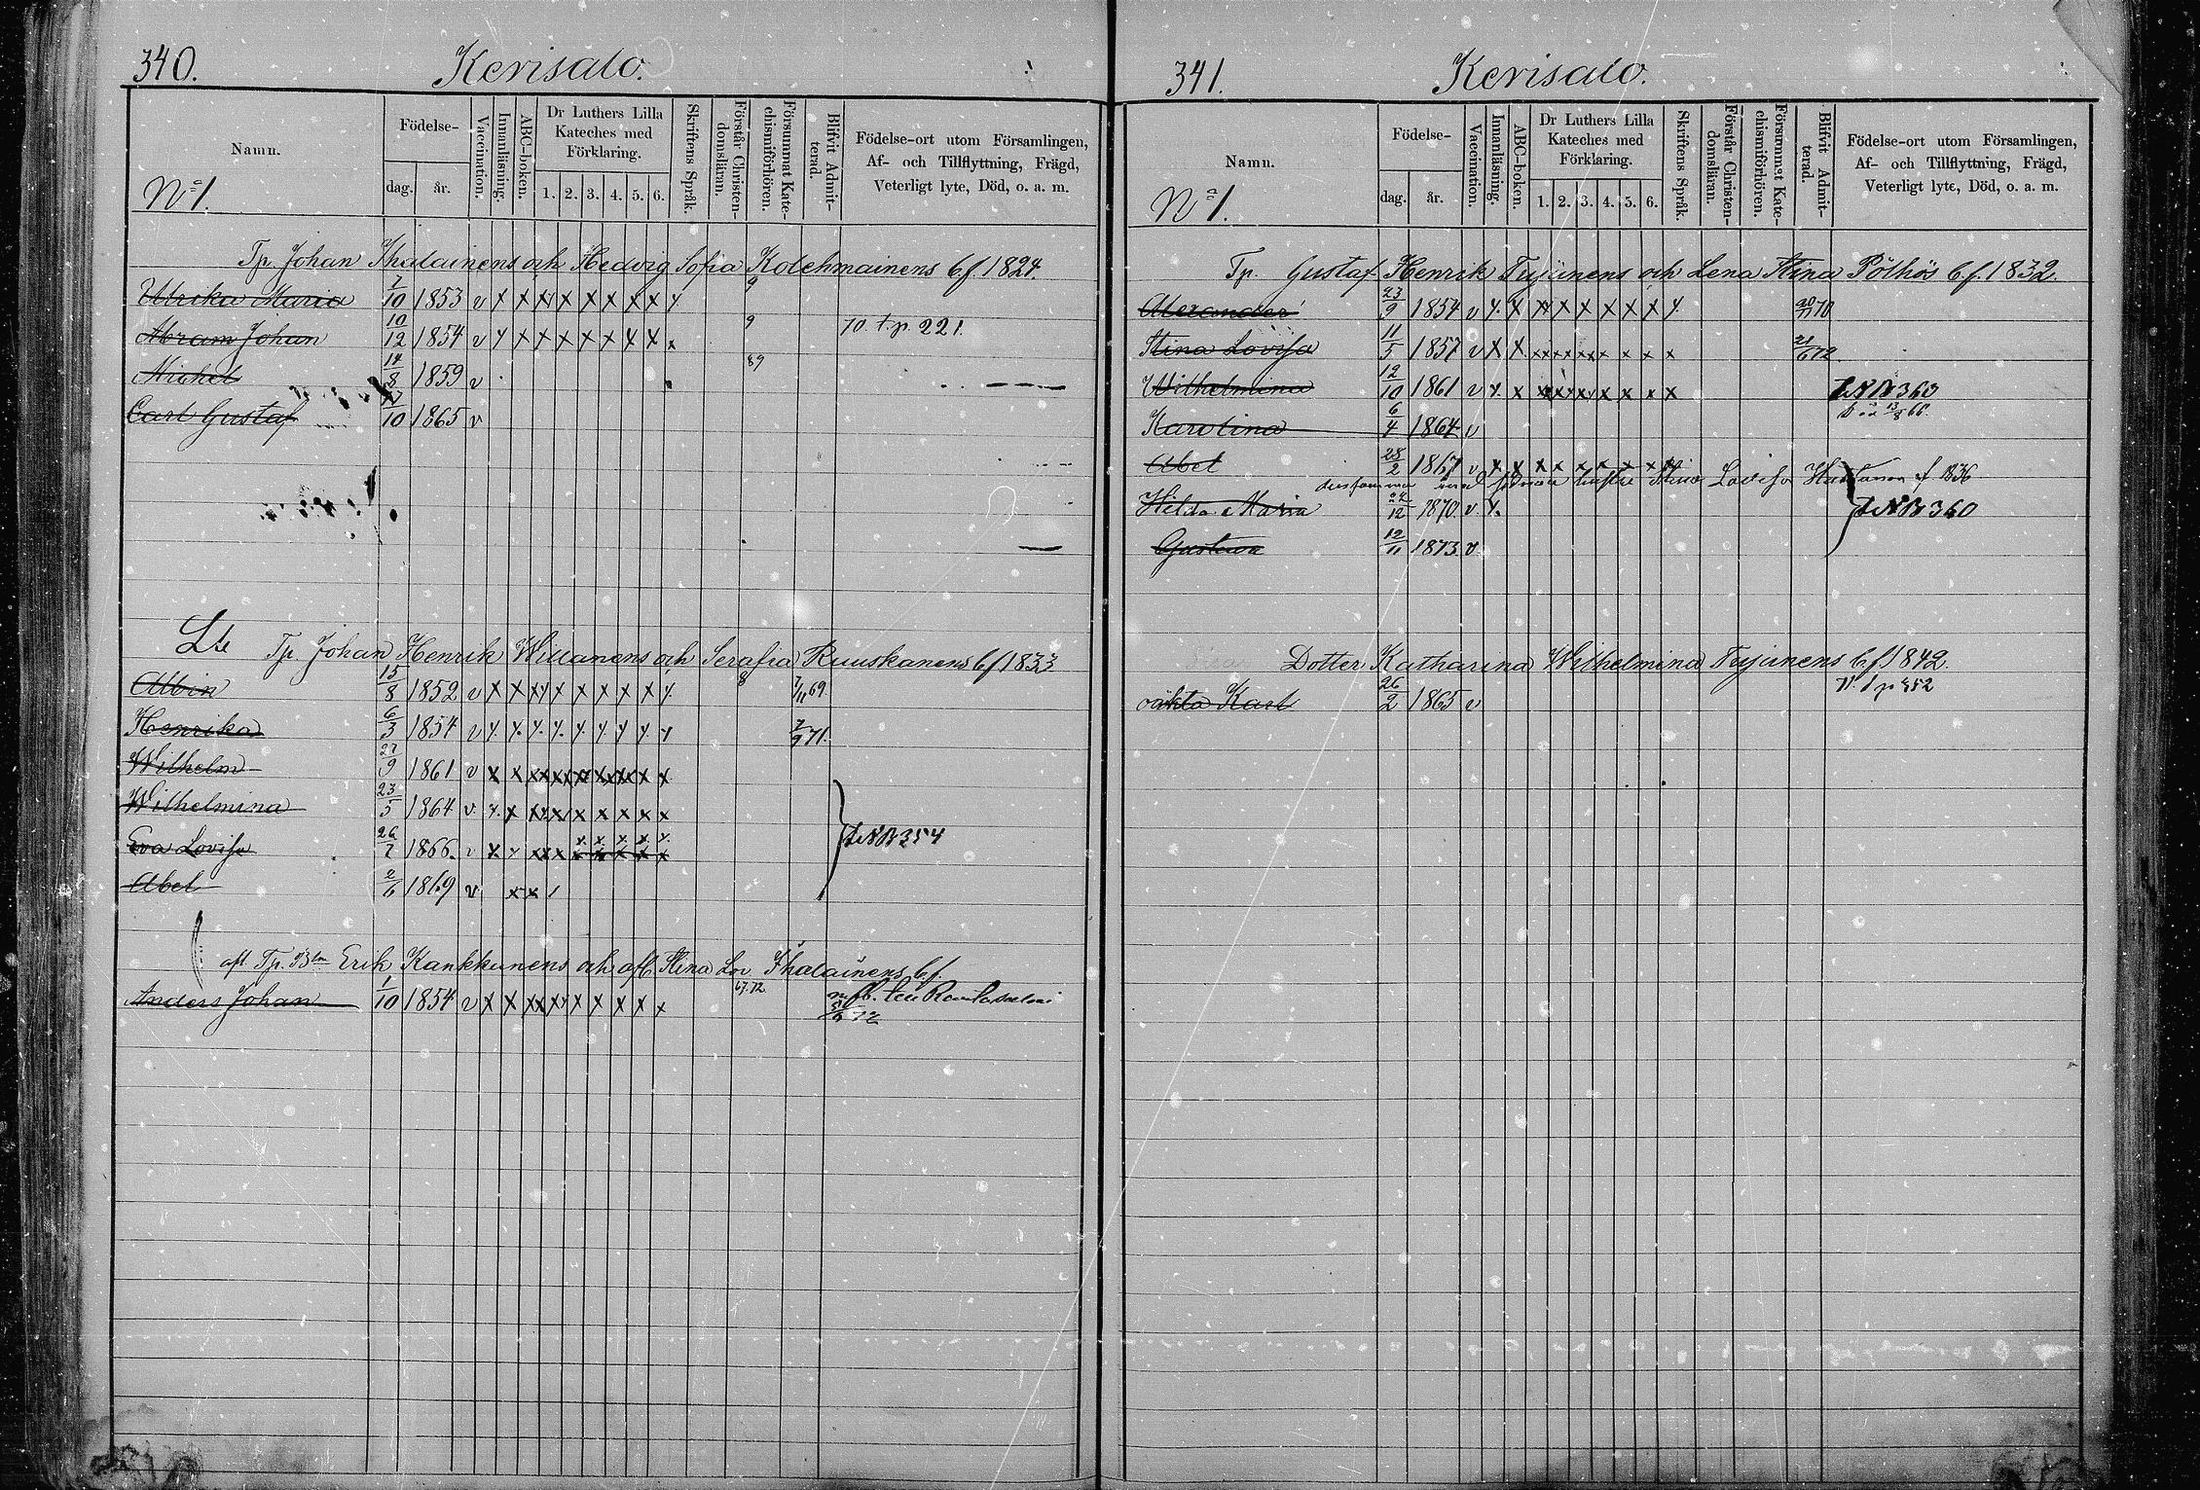 340.
Kerisalo.
Namn.
Födelse-
dag.
år.
Vaccination.
Innanläsning.
ABC-boken.
Dr Luthers Lilla
Kateches med
Förklaring.
1. 2. 3. 4. 5. 6.
Skriftens Språk.
Förstår Christen-
domsläran.
Försummat Kate-
chismiförhören.
Blifvit Admit-
terad.
Födelse-ort utom Församlingen,
Af- och Tillflyttning, Frägd,
Veterligt lyte, Död, o. a. m.
No 1.
Tp. Johan Ihalainens och Hedvig Sofia Kolehmainens b. f. 1824.
Ulrika Maria 7/10 1853 v x x x x x x x x x 9
Abram Johan 10/12 1854 v x x x x x x x x x 9 70 t. p. 221.
Michel 14/8 1859 v 89
Carl Gustaf /10 1865 v
Tp. Johan Henrik Willanens och Serafia Ruuskanens b f 1833
Albin 15/8 1852 v x x x x x x x x x 8 7/11 69.
Henrika 6/3 1854 v x x x x x x x x x 7/9 71.
Wilhelm 27/9 1861 v x x x x x x x x x
Wilhelmina 23/5 1864 v x x x x x x x x x
Eva Lovisa 26/7 1866. v x x x x x x x x x
354
Abel 2/6 1869 v x x /
Tp. Erik Kankkunens och Stina Lov. Ihalainens b. f.
Anders Johan 1/10 1854 v x x x x x x x x x 67. 72
72
341.
Kerisalo.
Namn.
Födelse-
dag.
år.
Vaccination.
Innanläsning.
ABC-boken.
Dr Luthers Lilla
Kateches med
Förklaring.
1. 2. 3. 4. 5. 6.
Skriftens Språk.
Förstår Christen-
domsläran.
Försummat Kate-
chismiförhören.
Blifvit Admit-
terad.
Födelse-ort utom Församlingen,
Af- och Tillflyttning, Frägd,
Veterligt lyte, Död, o. a. m.
No 1.
Tp. Gustaf Henrik Tujunens och Lena Stina Pölhös b. f. 1832.
Alexander 23/9 1854 v x x x x x x x x x 70
Stina Lovisa 11/5 1857 v x x x x x x x x x 21/6 72.
Wilhelmina 12/10 1861 v x x x x x x x x x 360
Karolina 6/4 1864 v
Abel 28/2 1867 v x x x x x x x x x
med hustru Stina Lovisa f. 1836
Hilda Maria /12 1870 v x. 360
Gustava 12/11 1873 v
Dotter Katharina Wilhelmina Tujunens b f 1842.
oäkta Karl 26/2 1865 v